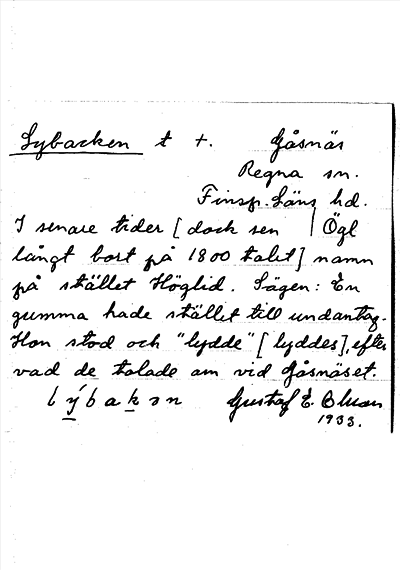 Lybacken t +. Gåsnäs
Regna sn.
Finsp. Läns hd.
I senare tider [dock sen | Ögl
långt bort på 1800 talet] namn
på stället Höglid. Sägen: En
gumma hade stället till undantag.
Hon stod och "lydde" [lyddes], efter
vad de talade om vid Gåsnäset.
lýbakən Gustaf E. Bluan
1933.